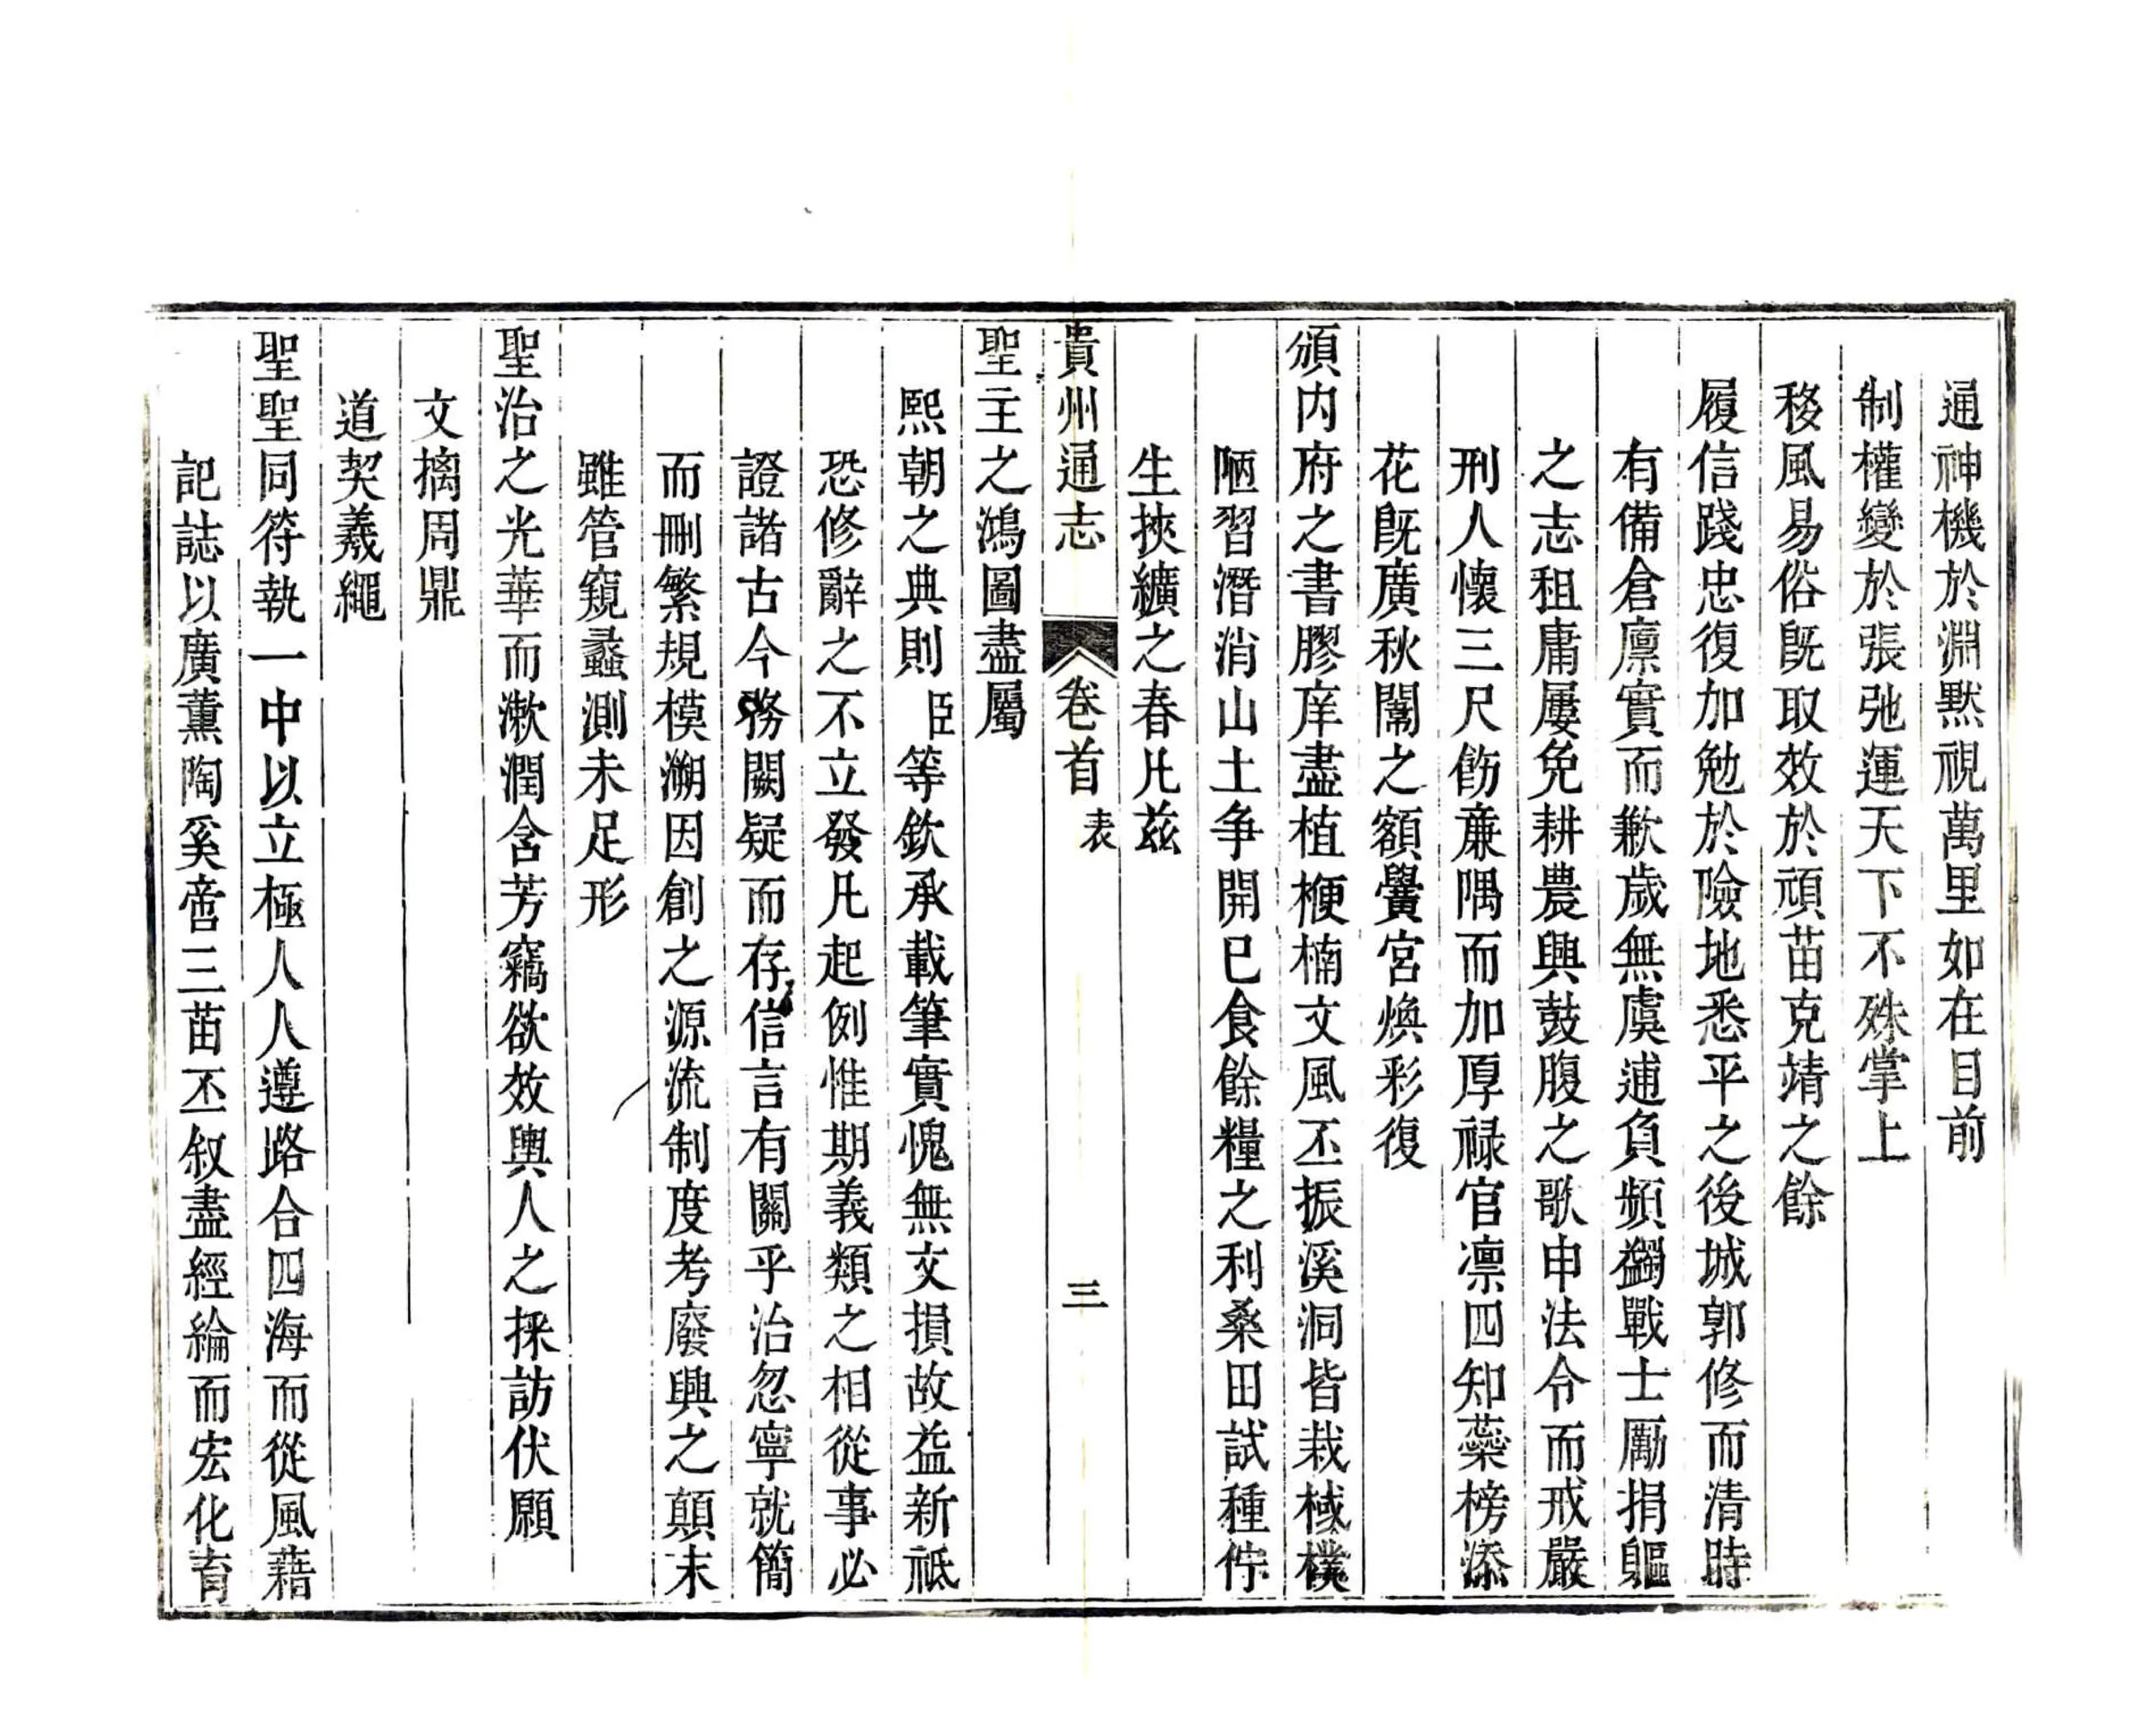 通神機於淵默視萬里如在目前
制權變於張弛運天下不殊掌上
移風易俗旣取效於頑苗克靖之餘
履信踐忠復加勉於險地悉平之後城郭修而清時
有備倉廪實而歉歲無虞逋負頻蠲戰士勵捐軀
之志租庸屢免耕農興鼓腹之歌申法令而戒嚴
刑人懷三尺飭亷隅而加厚禄官凛四知蘂榜添
花旣廣秋闈之額黌宮煥彩復
頒内府之書膠庠盡植楩楠文風丕振溪洞皆栽棫樸
陋習潛消山土争開巳食餘糧之利桑田試種佇
生挾纊之春凡兹
貴州通志 卷首 表 三
聖主之鴻圖盡屬
熙朝之典則臣等欽承載筆實愧無文損故益新祗
恐修辭之不立發凡起例惟期義類之相從事必
證諸古今務闕疑而存信言有關乎治忽寧就簡
而刪繁規模溯因創之源流制度考廢興之顛末
雖管窺蠡測未足形
聖治之光華而漱潤含芳竊欲效輿人之採訪伏願
文摛周鼎
道契羲繩
聖聖同符執一中以立極人人遵路合四海而從風藉
記誌以廣薰陶奚啻三苗丕叙盡經綸而宏化育